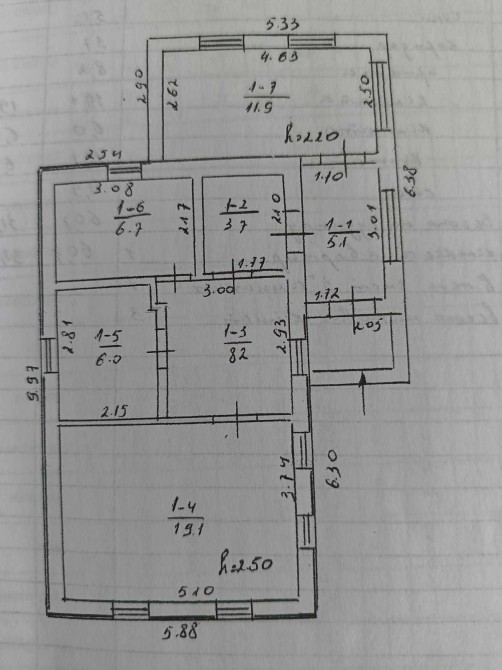 5.33
4.63
2.90
2.62
1-7
11.9
2.50
h=2.20
2.54
3.08
1.10
6.38
1-6
6.7
2.17
1-2
3.7
2.10
1-1
5.1
3.01
1.77
3.00
1.72
2.05
2.81
1-5
6.0
1-3
8.2
2.93
9.97
2.15
3.74
6.30
1-4
19.1
h=2.50
5.10
5.88